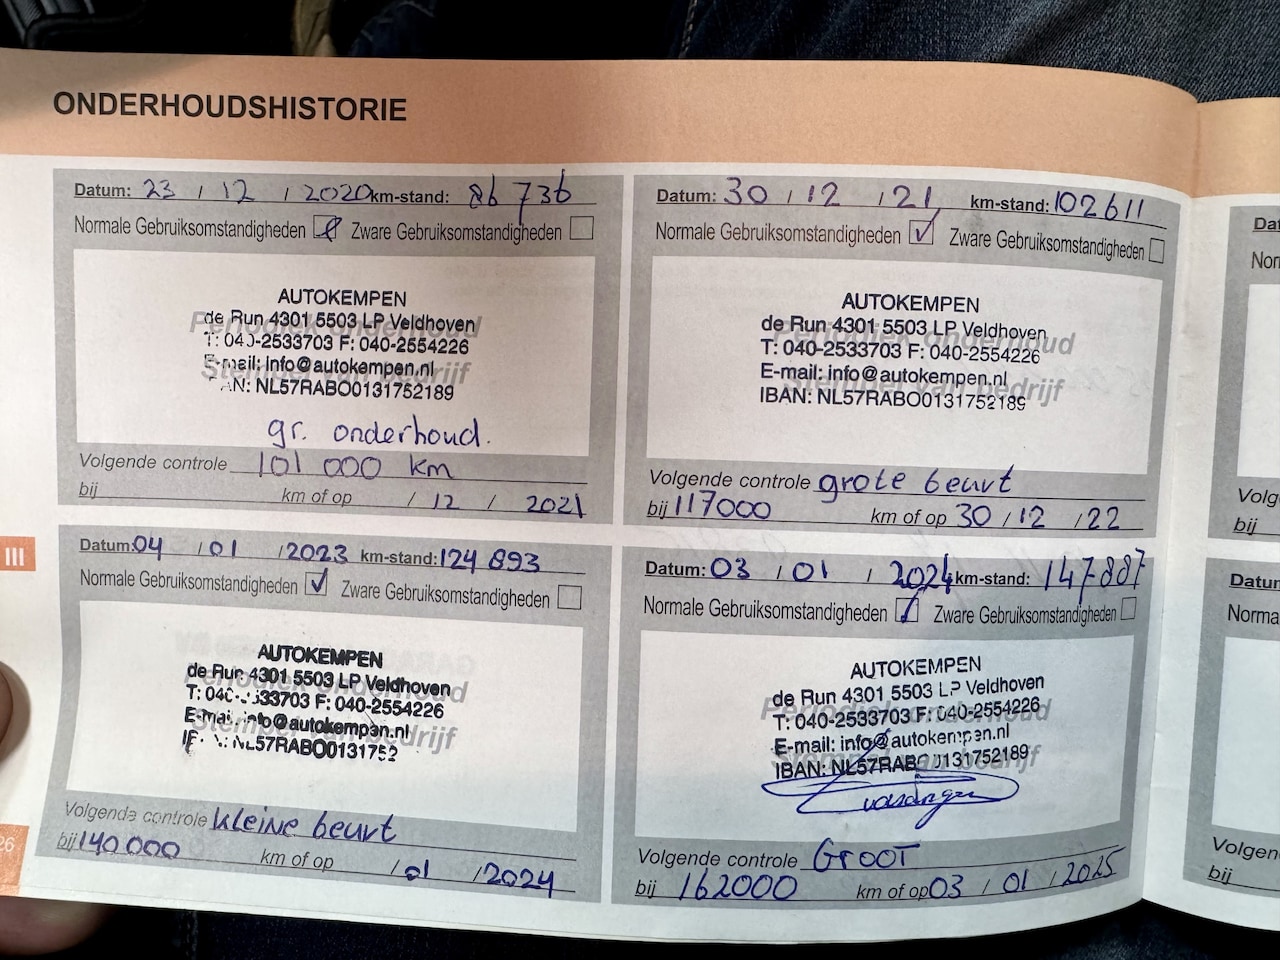 ONDERHOUDSHISTORIE
Datum: 23 / 12 / 2020 km-stand: 86 736
Normale Gebruiksomstandigheden Zware Gebruiksomstandigheden
AUTOKEMPEN
de Run 4301 5503 LP Veldhoven
Periodiek onderhoud
T: 040-2533703 F: 040-2554226
E-mail: info@autokempen.nl
Stempel van bedrijf
IBAN: NL57RABO0131752189
gr. onderhoud.
Volgende controle 101 000 km
bij km of op / 12 / 2021
Datum: 30 / 12 / 21 km-stand: 102611
Normale Gebruiksomstandigheden Zware Gebruiksomstandigheden
AUTOKEMPEN
de Run 4301 5503 LP Veldhoven
Periodiek onderhoud
T: 040-2533703 F: 040-2554226
E-mail: info@autokempen.nl
Stempel van bedrijf
IBAN: NL57RABO0131752189
Volgende controle grote beurt
bij 117000 km of op 30 / 12 / 22
III
Datum: 04 / 01 / 2023 km-stand: 124 893
Normale Gebruiksomstandigheden Zware Gebruiksomstandigheden
AUTOKEMPEN
de Run 4301 5503 LP Veldhoven
Periodiek onderhoud
T: 040-2533703 F: 040-2554226
E-mail: info@autokempen.nl
Stempel van bedrijf
NL57RABO0131752
Volgende controle kleine beurt
bij 140 000 km of op / 01 / 2024
Datum: 03 / 01 / 2024 km-stand: 147887
Normale Gebruiksomstandigheden Zware Gebruiksomstandigheden
AUTOKEMPEN
de Run 4301 5503 LP Veldhoven
Periodiek onderhoud
T: 040-2533703 F: 040-2554226
E-mail: info@autokempen.nl
Stempel van bedrijf
IBAN: NL57RABO0131752189
Volgende controle GROOT
bij 162000 km of op 03 / 01 / 2025
26
Dat
Nor
Volg
bij
Datun
Norma
Volgen
bij